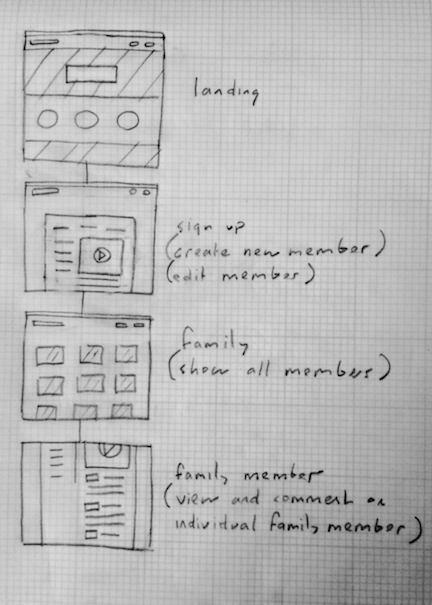 landing
sign up
(create new member)
(edit member)
family
(show all members)
family member
(view and comment on
individual family member)